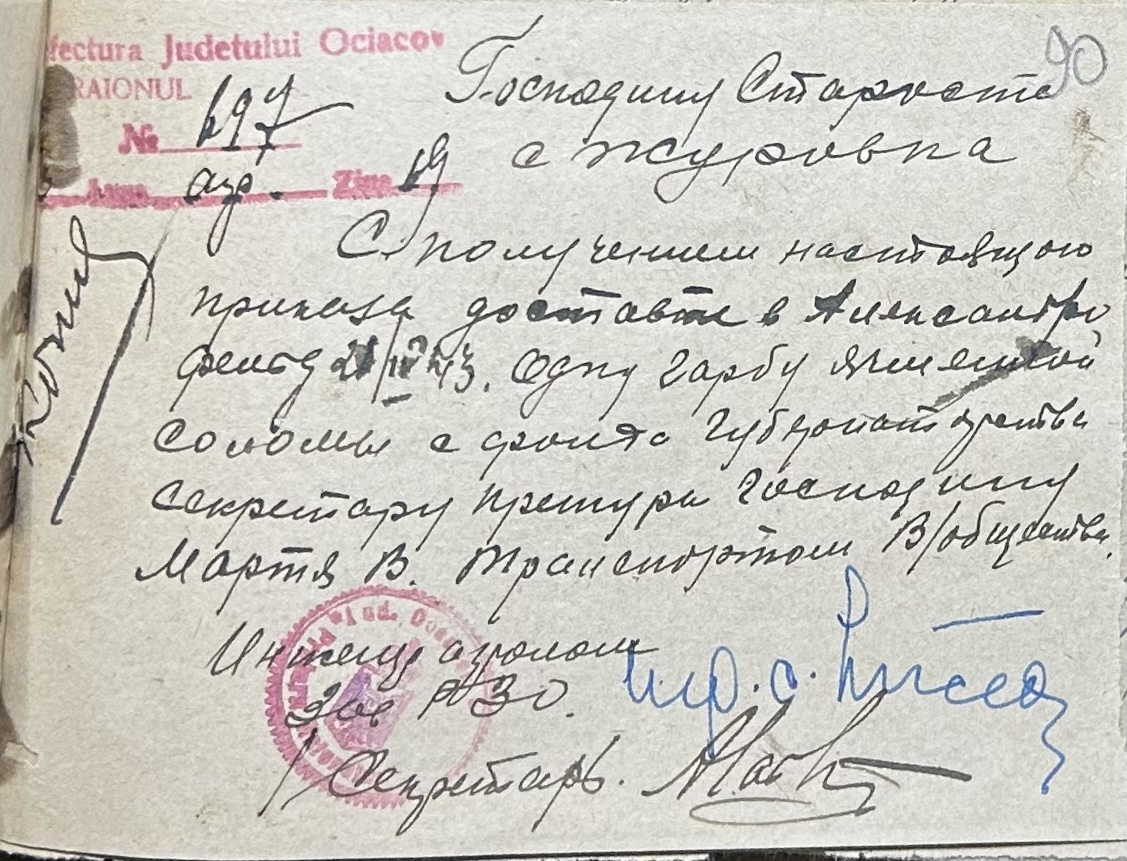 fectura Judetului Ociacov
RAIONUL
90
№ 697
Anno agr. Ziua 19
Господину Староста
с Журовка
С получением настоящого
приказа доставте в Александро
фельд 21/IV 43. Одну гарбу ячменной
соломы с фонта Губернаторства
секретару претури Господину
Мартя В. транспортом В/общества.
Инженер агроном
Зав РЗО.
Секретарь.